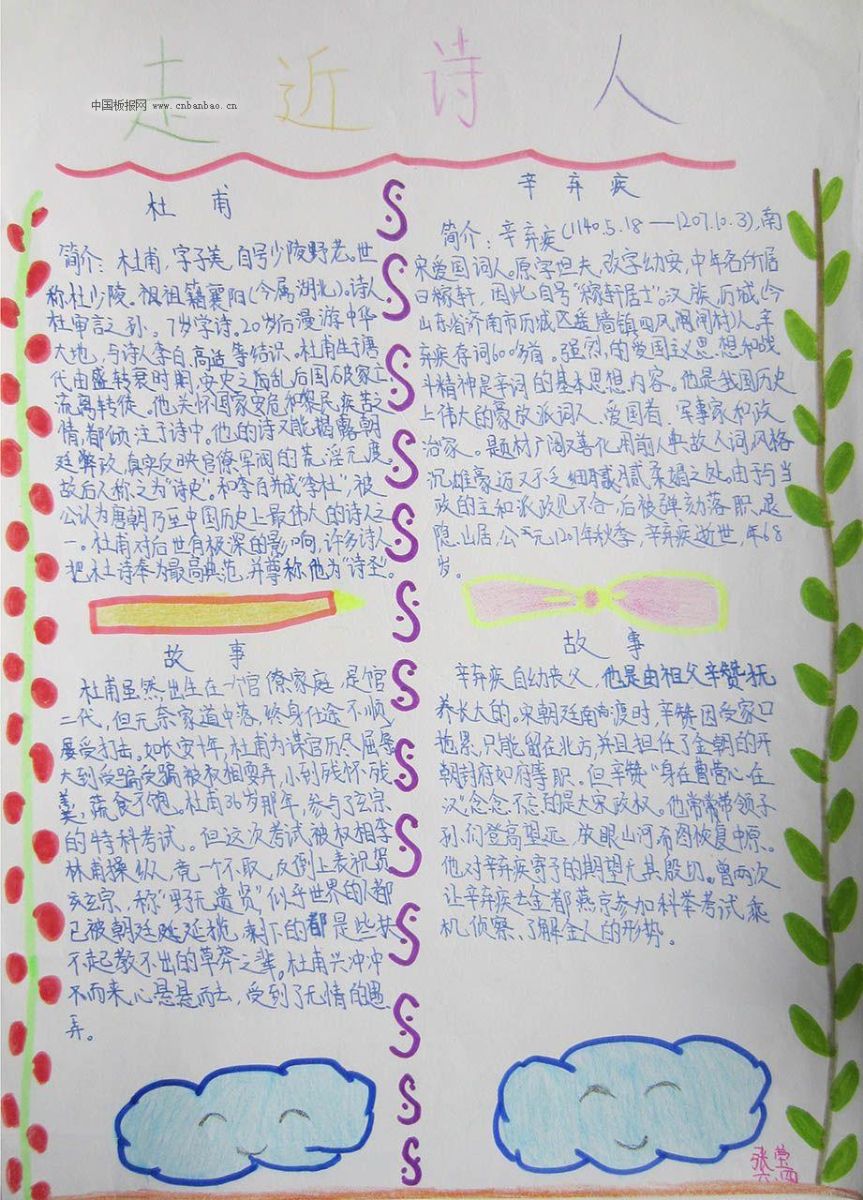 走近诗人
中国板报网 www.cnbanbao.cn
杜甫
简介：杜甫，字子美，自号少陵野老。世
称杜少陵。祖籍襄阳(今属湖北)。诗人
杜审言之孙。7岁学诗，20岁后漫游中华
大地，与诗人李白、高适等结识。杜甫生于唐
代由盛转衰时期，安史之乱后国破家亡
流离转徒。他关怀国家安危和黎民疾苦之
情，都倾注于诗中。他的诗又能揭露朝
廷弊政，真实反映官僚军阀的荒淫无度。
故后人称之为“诗史”。和李白并称“李杜”，被
公认为唐朝乃至中国历史上最伟大的诗人之
一。杜甫对后世有极深的影响，许多诗人
把杜诗奉为最高典范，并尊称他为“诗圣”。
故事
杜甫虽然出生在一个官僚家庭，是官
二代，但无奈家道中落，终身仕途不顺，
屡受打击。如长安十年，杜甫为谋官历尽屈辱
大到受骗受骗被权相耍弄，小到残怀残
羹，蔬食不饱。杜甫36岁那年，参与了玄宗
的特科考试。但这次考试被权相李
林甫操纵，竟一个不取，反倒上表祝贺
玄宗，称“野无遗贤”，似乎世界的都
已被朝廷延揽，剩下的都是些扶
不起教不出的草莽之辈。杜甫兴冲冲
不而来，心悬悬而去，受到了无情的愚
弄。
辛弃疾
简介：辛弃疾(1140.5.18—1207.10.3)，南
宋爱国词人。原字坦夫，改字幼安，中年名所居
曰稼轩，因此自号“稼轩居士”。汉族，历城(今
山东省济南市历城区遥墙镇四风闸村)人。辛
弃疾存词600多首。强烈的爱国主义思想和战
斗精神是辛词的基本思想内容。他是我国历史
上伟大的豪放派词人、爱国者、军事家和政
治家。题材广阔又善化用前人典故入词，风格
沉雄豪迈又不乏细腻柔媚之处。由于与当
政的主和派政见不合，后被弹劾落职，退
隐山居，公元1207年秋季，辛弃疾逝世，年68
岁。
故事
辛弃疾自幼丧父，他是由祖父辛赞抚
养长大的。宋朝廷南渡时，辛赞因受家口
拖累，只能留在北方，并且担任了金朝的开
朝封府如府等职。但辛赞“身在曹营心在
汉”，念念不忘的是大宋政权。他常常带领子
孙们登高望远，放眼山河，希图恢复中原。
他对辛弃疾寄予的期望尤其殷切。曾两次
让辛弃疾去金都燕京参加科举考试，乘
机侦察、了解金人的形势。
张莹
六、四